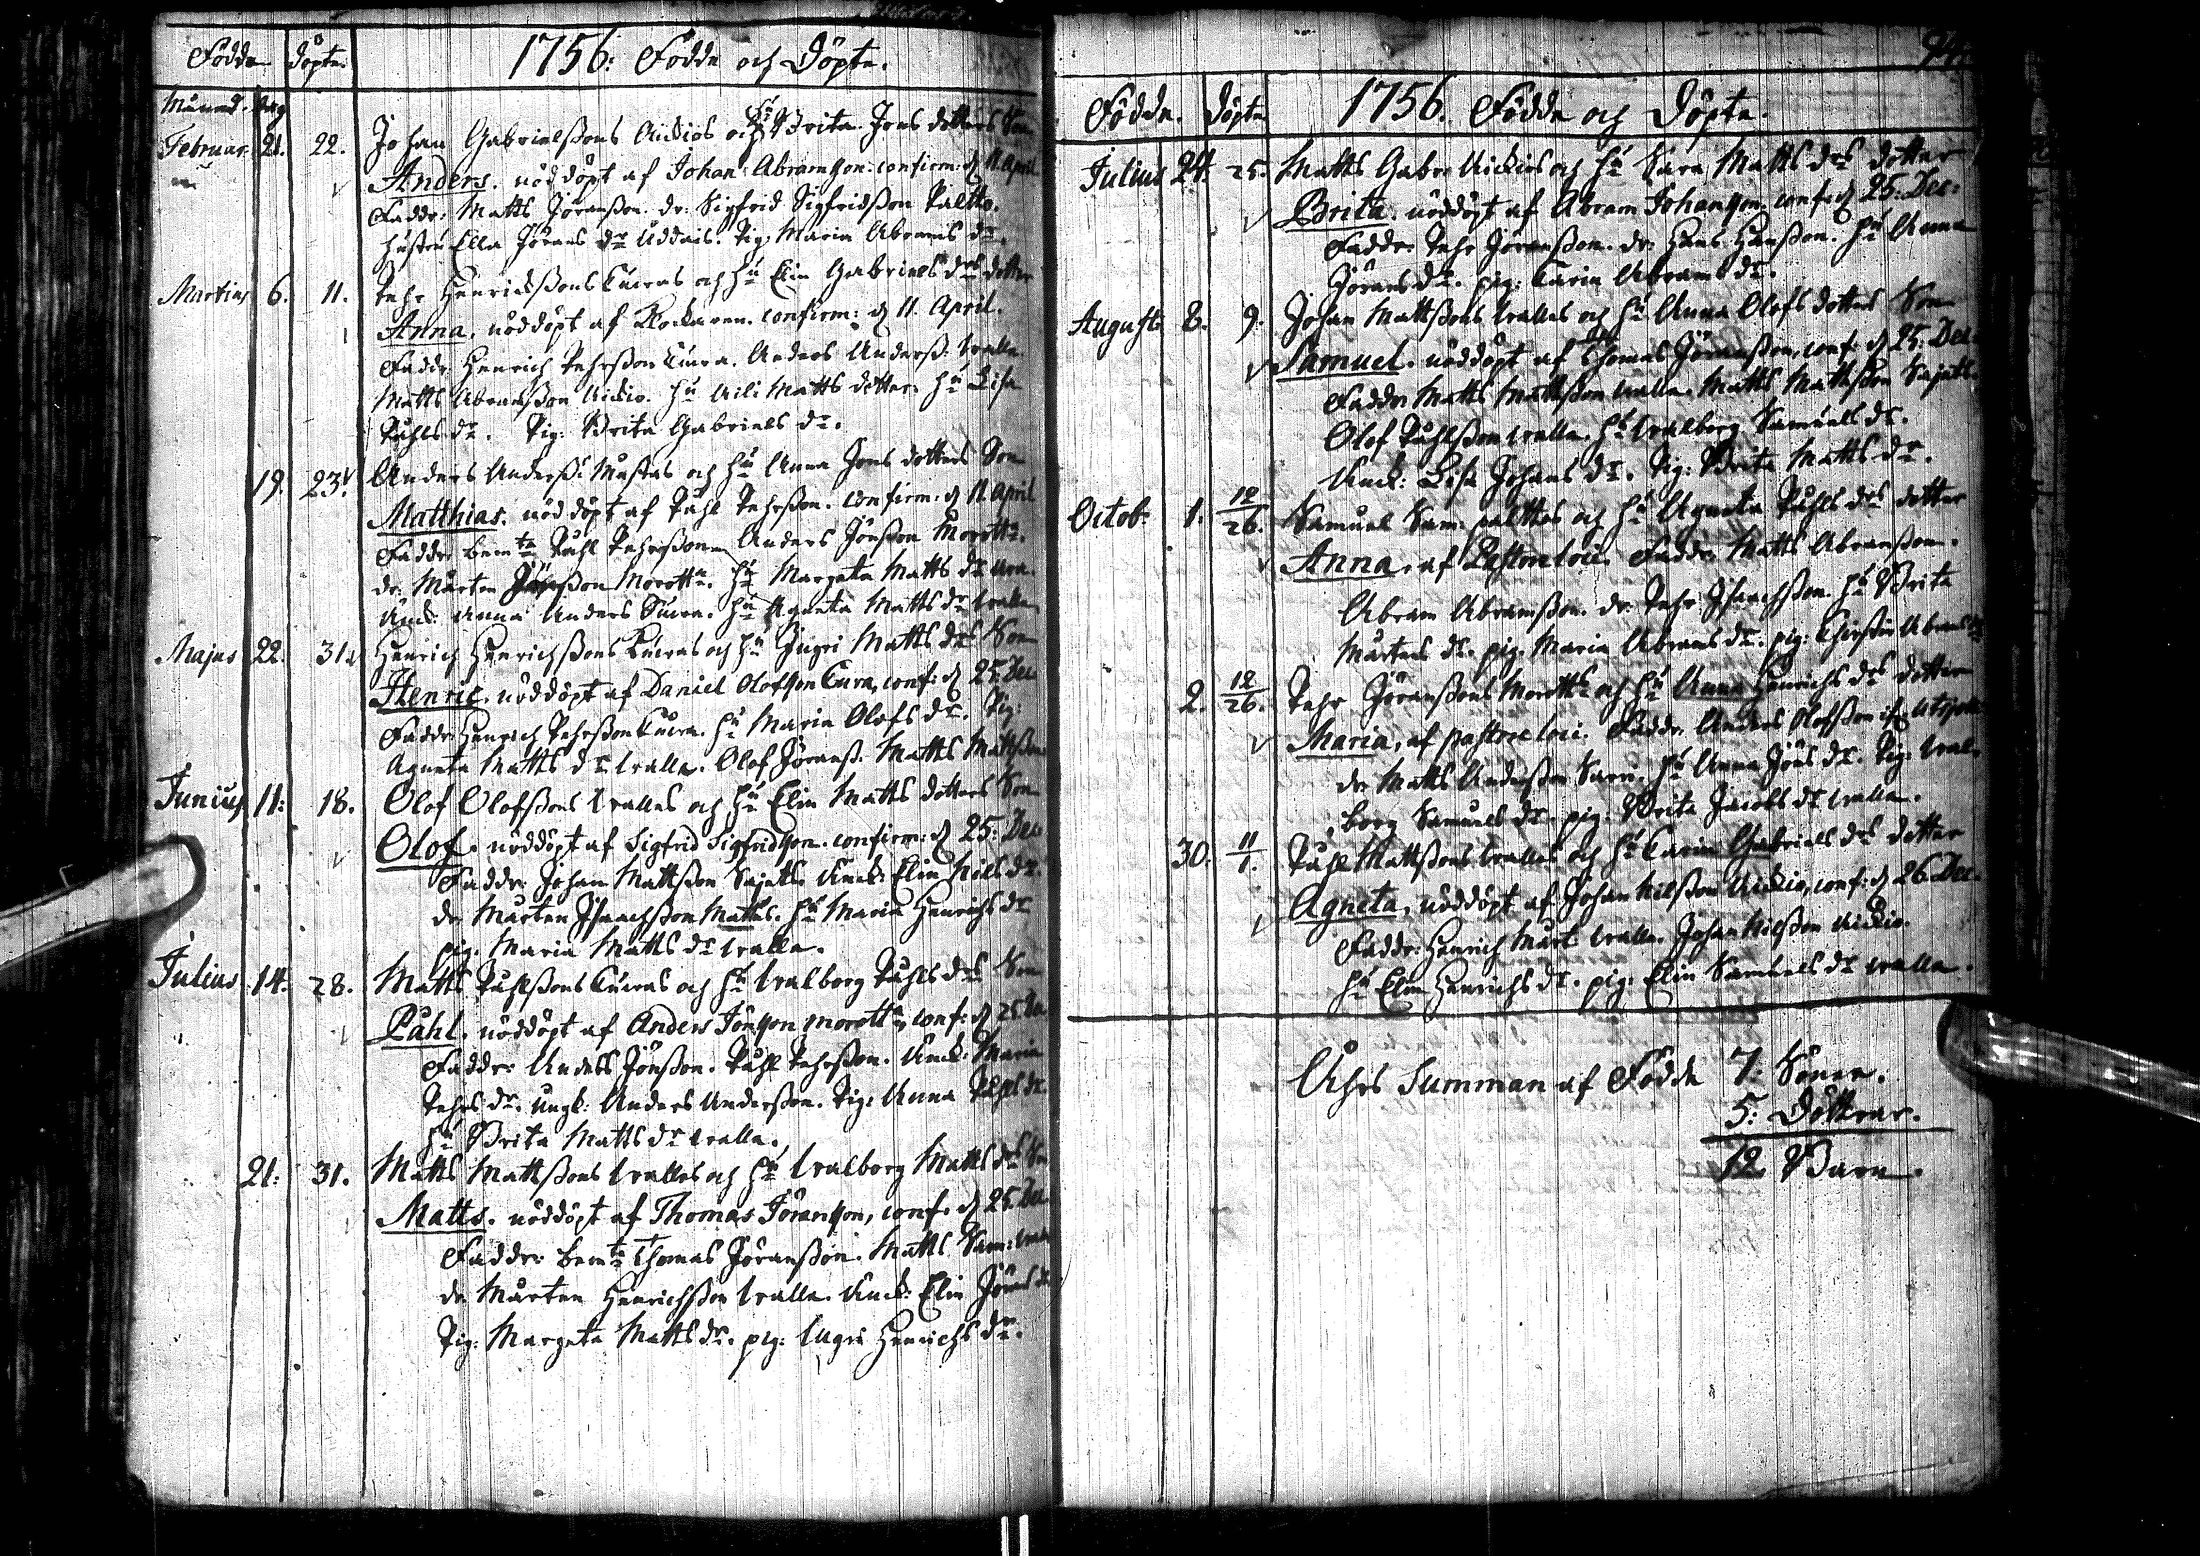 Födde döpte. 1756: Födde och Döpte.
Månad. dag
Februar. 21. 22. Johan Gabrielßons och Hu Brita Jons dotters Son
Anders. nöddöpt af Johan Abramßon. confirm: d 11 April
Faddr: Matts Jöranßon. dr: Sigfrid Sigfridßon Paltto.
hustru Ella Jörans dr Uddais. Pig: Maria Abrams dr.
Martius 6. 11. Pehr Henrichßons Curas och Hu Elin Gabriels drs dotter
Anna. nöddöpt af Klockaren. confirm: d 11. April.
Faddr: Henrich Pehrßon Cura. Anders Anderß. Walle.
Matts Abramßon Hu Matts dotter. Hu Lisa
Påhls dr. Pig: Brita Gabriels dr.
19. 23. Anders Anderß. och Hu Anna Jons dotters Son
Matthias. nöddöpt af Påhl Pehrßon. confirm: d 11 April
Faddr: bemte Påhl Pehrßon Anders Jönßon
dr: Mårten Morotta. Hu Margeta Matts dr
Anna Anders Hu Agneta Matts dr Walle
Majus 22. 31. Henrich Henrichßons Curas och Hu Ingri Matts drs Son
Henric. nöddöpt af Daniel Olofßon Cura, conf: d 25 Dec.
Faddr: Henrich Pehrßon Cura. Hu Maria Olofs dr. Pig:
Agneta Matts dr Walle. Olof Jöranß. Matts Mattßon
Junius 11: 18. Olof Olofßons Walles och Hu Elin Matts dotters Son
Olof. nöddöpt af Sigfrid Sigfridßon. confirm: d 25: Dec:
Faddr: Johan Mattßon Elin Nils dr.
dr: Mårten Isaachßon Hu Maria Henrichs dr
pig: Maria Matts dr Walle.
Julius 14. 28. Matts Påhlßons Curas och Hu Walborg Påhls drs Son
Påhl. nöddöpt af Anders Jönßon Morotta, conf: d 25 Dec.
Faddr: Anders Jönßon. Påhl Pehrßon. Maria
Pehrs dr. ungk: Anders Anderßon. Pig: Anna Påhls dr.
Hu Brita Matts dr Walle.
21. 31. Matts Mattßons Walles och Hu Walborg Matts drs Son
Matts. nöddöpt af Thomas Jöranßon, conf. d 25. Dec
Faddr: bemte Thomas Jöranßon. Matts Sam:
dr Mårten Henrichßon Walle. Elin
Pig: Margeta Matts dr. pig: Ingri Henrichs dr.
Födde. Döpte 1756. Födde och Döpte.
Julius 24. 25. Matts Gabr: och Hu Sara Matts drs dotter
Brita. nöddöpt af Abram Johanßon. conf: d 25. Dec:
Faddr: Pehr Jöranßon. dr: Hans Hanßon. Hu Anna
Jörans dr. pig: Carin Abrams dr.
August: 8. 9. Johan Mattßons Walles och Hu Anna Olofs dotters Son
Samuel. nöddöpt af Thomas Jöranßon, conf: d 25. Dec.
Faddr: Matts Mattßon Walle. Matts Mattßon
Olof Påhlßon Walle. Hu Walborg Samuels dr.
Lisa Johans dr. Pig: Brita Matts dr.
Octob: 1. 12/26. Samuel Sam: palttos och Hu Agneta Påhls drs dotter
Anna. af Pastore loci. Faddr: Matts Abramßon.
Abram Abramßon. dr: Pehr Isaachßon. Hu Brita
Mårtens dr. pig. Maria Abrams dr. pig: Abrams dr
2. 12/26. Pehr Jöranßons Morotts och Hu Anna Henrichs drs dotter
Maria, af pastore loci. Faddr: Anders Olofßon
dr: Matts Anderßon Hu Anna Jöns dr. Pig: Wal-
borg Samuels dr. pig: Brita Jacobs dr Walle.
30. 11/1. Påhl Mattßons Walles och Hu Carin Gabriels drs dotter
Agneta, nöddöpt af Johan Nilßon conf: d 26. Dec.
Faddr: Henrich Mårt: Walle. Johan Nilßon
Hu Elin Henrichs dr. pig: Elin Samuels dr Walle.
Ahrs Summan af Födde 7: Söner.
5: Döttrar.
12 Barn.